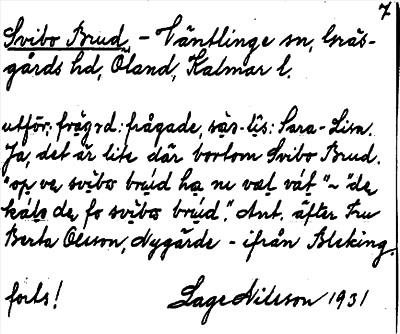 7
Svibo Brud, – Väntlinge sn, Gräs-
gårds hd, Öland, Kalmar l.
utför: frågrd: frågade, sàs-lis: Sara-Lisa.
Ja, det är lite där bortom Svibo Brud.
"op ve svibo brúd ha ne væl vát" ~ "de
káls de fo svibo brúd". Ant. äfter Fru
Berta Olsson, Nygärde – ifrån Bleking.
forts! Lage Nilsson 1931